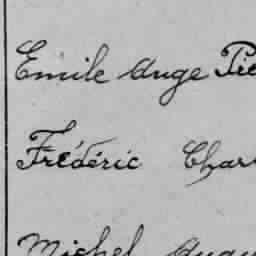 Emile Ange Pie
Frédéric Char
Michel Augu